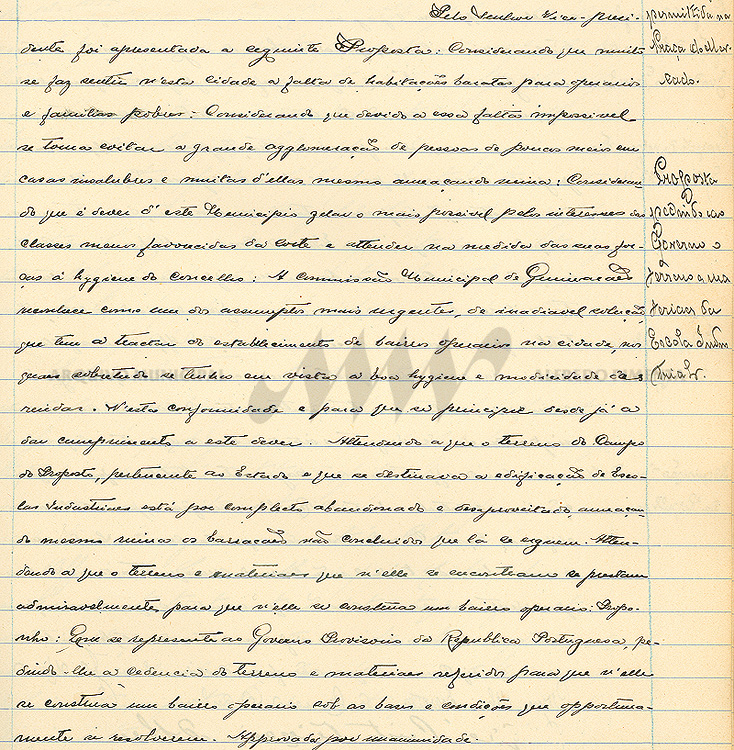 Pelo Senhor Vice-presi-
dente foi apresentada a seguinte Proposta: Considerando que muito
se faz sentir n'esta cidade a falta de habitações baratas para operarios
e familias pobres: Considerando que devido a essa falta impossivel
se torna evitar a grande agglomeração de pessoas de poucos meios em
casas insalubres e muitas d'ellas mesmo ameaçando ruina: Consideran-
do que é dever d'este Municipio zelar o mais possivel pelos interesses das
classes menos favorecidas da sorte e attender na medida das suas for-
ças á hygiene do concelho: A Commissão Municipal de Guimarães
reconhece como um dos assumptos mais urgentes, de inadiavel solução
que tem a tractar o estabelecimento de bairros operarios na cidade, nos
quaes sobretudo se tenha em vista a boa hygiene e modicidade de
rendas. N'esta conformidade e para que se principie desde já a
dar cumprimento a este dever. Attendendo a que o terreno do Campo
do Proposto, pertencente ao Estado e que se destinava a edificação de Esco-
las Industriaes está por completo abandonado e desaproveitado, ameaçan-
do mesmo ruina os barracões não concluidos que lá se erguem. Atten-
dendo a que o terreno e materiaes que n'elle se encontram se prestam
admiravelmente para que n'elle se construa um bairro operario: Propo-
nho: Que se represente ao Governo Provisorio da Republica Portuguesa, pe-
dindo-lhe a cedencia do terreno e materiaes referidos para que n'elle
se construa um bairro operario sob as bases e condições que opportuna-
mente se resolverem. Approvada por unanimidade.
permittida na
Praça do Mer-
cado.
Proposta
pedindo ao
Governo o
terreno e ma
teriaes da
Escola Indus
trial.